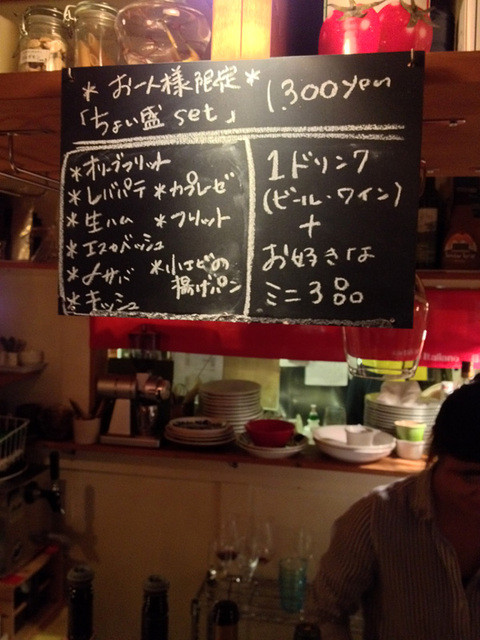 ＊お一人様限定＊
「ちょい盛set」 1.300yen
＊オリーブフリット
＊レバパテ ＊カプレーゼ
＊生ハム ＊フリット
＊エスカベッシュ
＊〆サバ ＊小エビの
揚げパン
＊キッシュ
1ドリンク
(ビール・ワイン)
+
お好きな
ミニ3品
Italiano